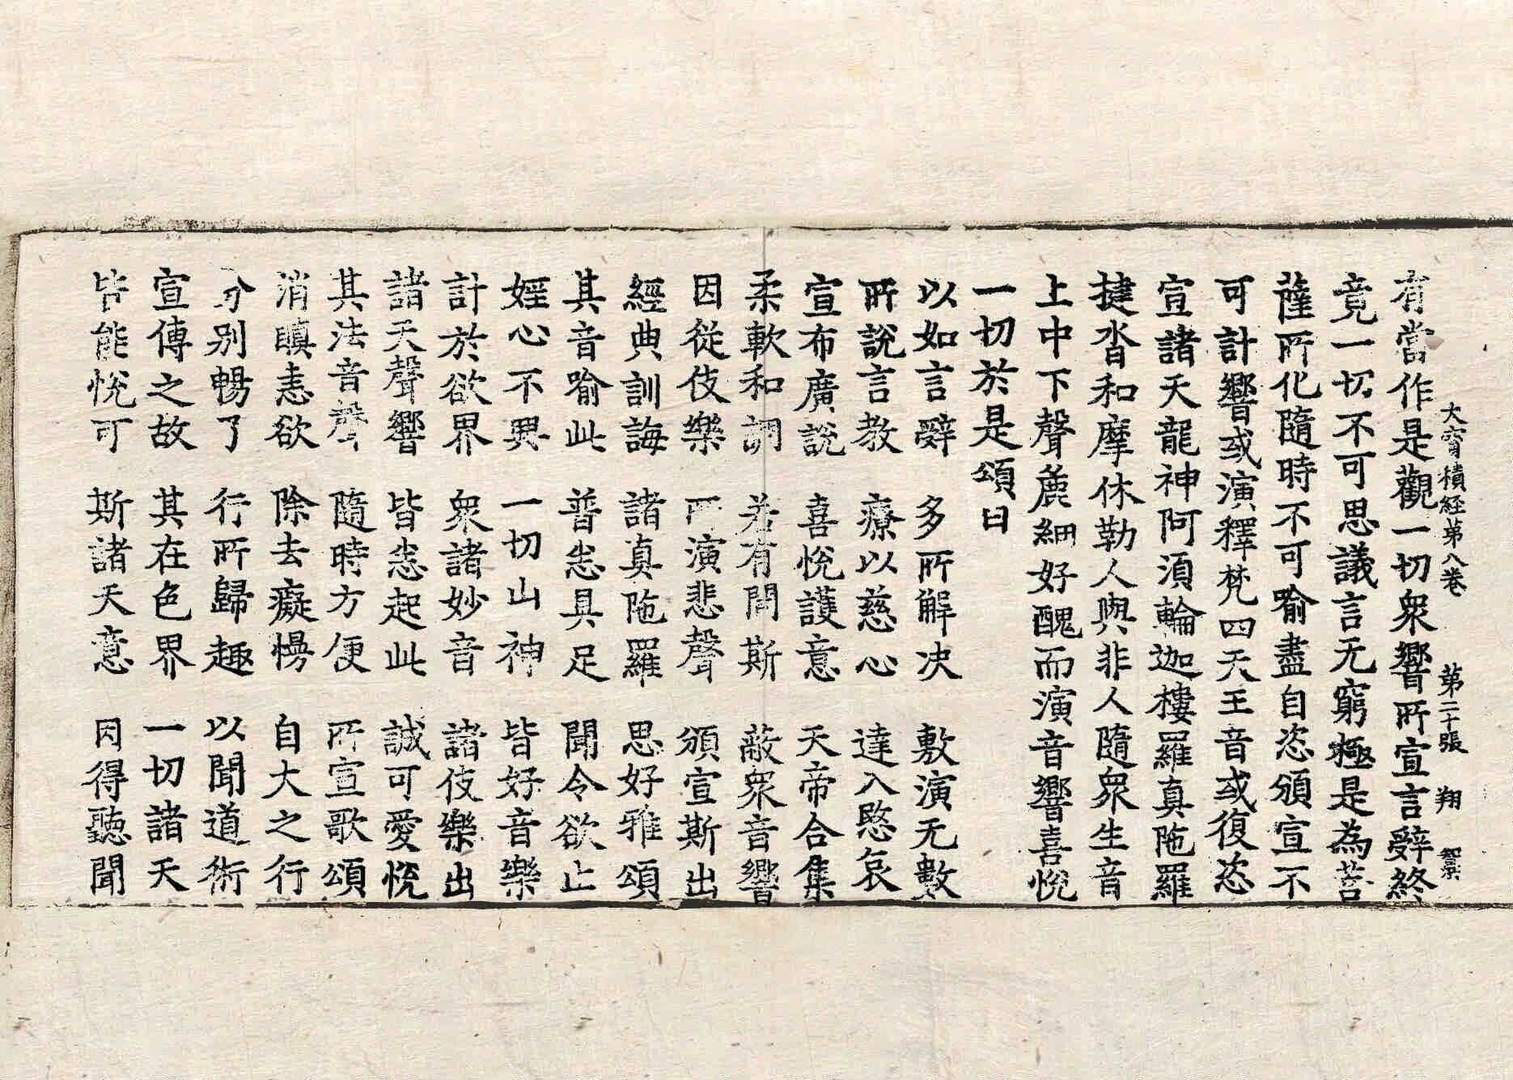 大寶積経第八卷 第二十張 翔
有當作是觀一切衆響所宣言辭終
竟一切不可思議言无窮極是為菩
薩所化隨時不可喻盡自恣頒宣不
可計響或演釋梵四天王音或復恣
宣諸天龍神阿須輪迦樓羅真陁羅
揵沓和摩休勒人與非人隨衆生音
上中下聲麁細好醜而演音響喜悅
一切於是頌曰
以如言辭 多所解决 敷演无數
所說言教 療以慈心 達入愍哀
宣布廣說 喜悅護意 天帝合集
柔軟和調 若有聞斯 蔽衆音響
因從伎樂 所演悲聲 頒宣斯出
經典訓誨 諸真陁羅 思好雅頌
其音喻此 普悉具足 聞令欲止
婬心不興 一切山神 皆好音樂
計於欲界 衆諸妙音 諸伎樂出
諸天聲響 皆悉起此 誠可愛悅
其法音聲 隨時方便 所宣歌頌
消瞋恚欲 除去癡慢 自大之行
分別暢了 行所歸趣 以聞道術
宣傳之故 其在色界 一切諸天
皆能悅可 斯諸天意 因得聽聞